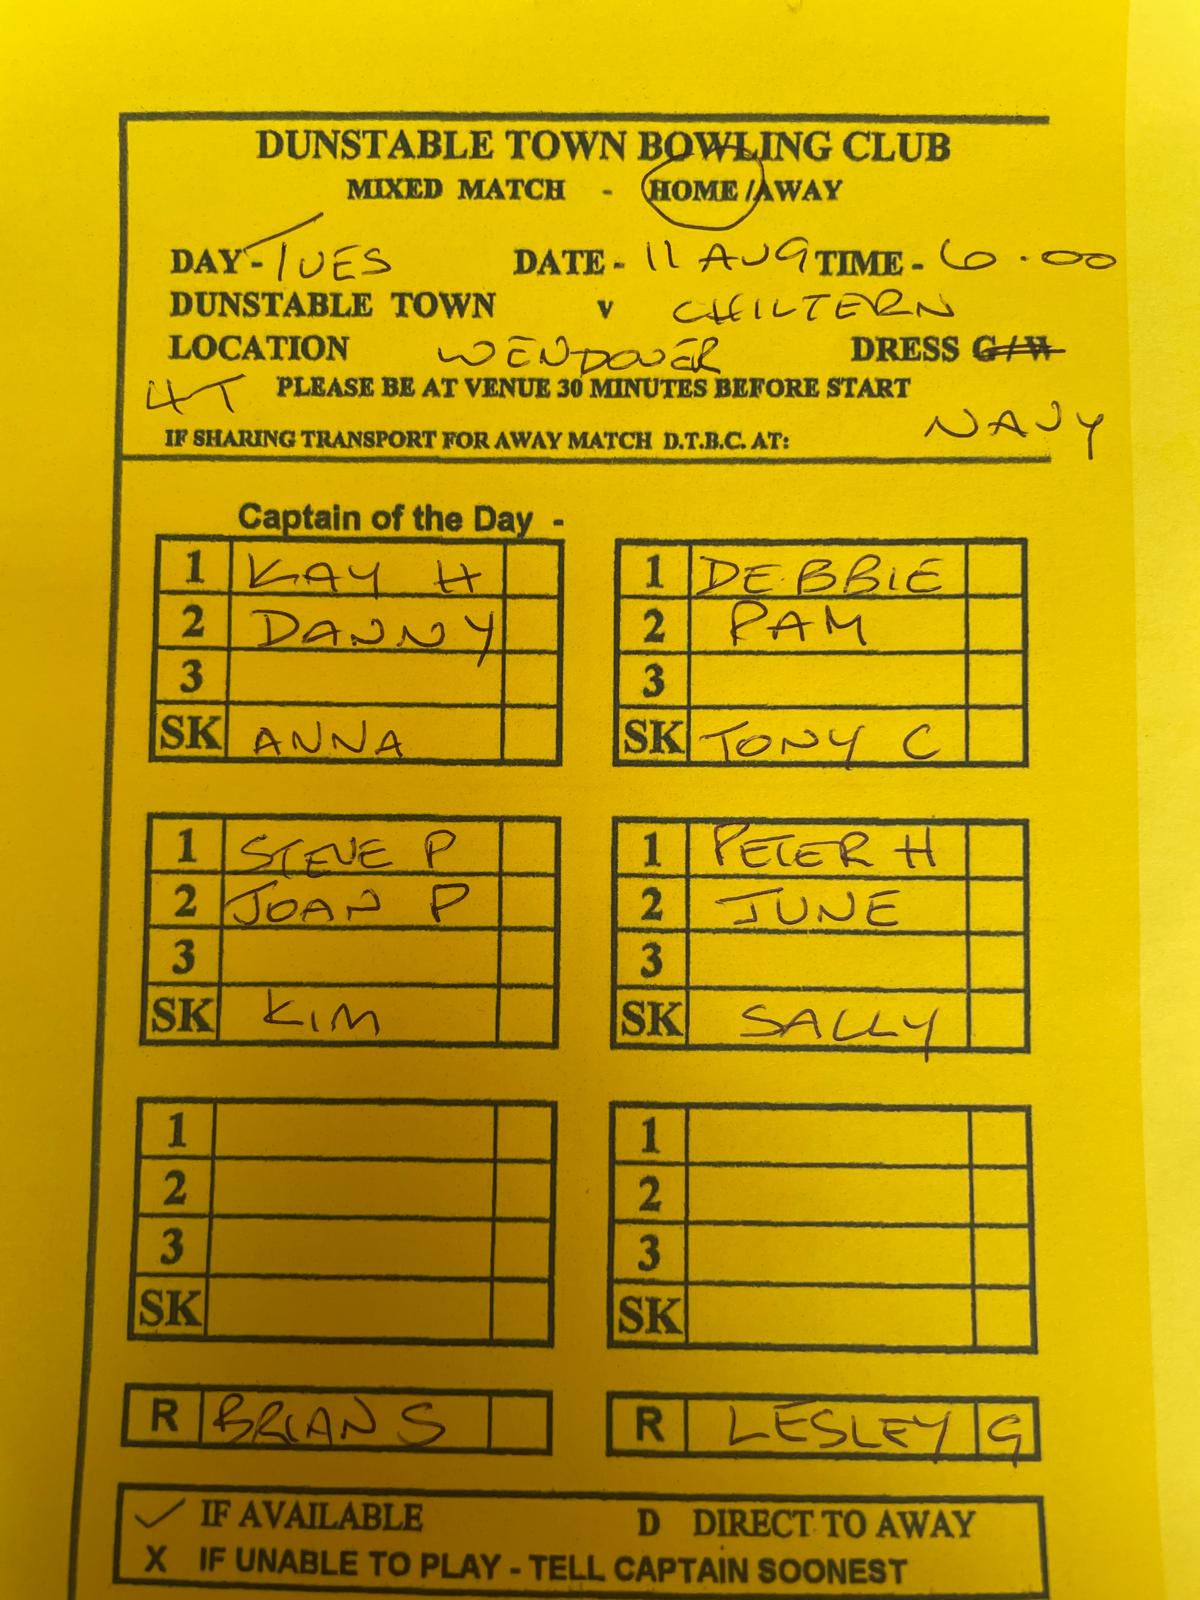 DUNSTABLE TOWN BOWLING CLUB
MIXED MATCH - HOME/AWAY
DAY - TUES DATE - 11 AUG TIME - 6.00
DUNSTABLE TOWN v CHILTERN
LOCATION WENDOVER DRESS G/W
4T PLEASE BE AT VENUE 30 MINUTES BEFORE START
NAVY
IF SHARING TRANSPORT FOR AWAY MATCH D.T.B.C. AT:
Captain of the Day -
1 KAY H
2 DANNY
3
SK ANNA
1 DEBBIE
2 PAM
3
SK TONY C
1 STEVE P
2 JOAN P
3
SK KIM
1 PETER H
2 JUNE
3
SK SALLY
1
2
3
SK
1
2
3
SK
R BRIAN S
R LESLEY G
✓ IF AVAILABLE D DIRECT TO AWAY
X IF UNABLE TO PLAY - TELL CAPTAIN SOONEST